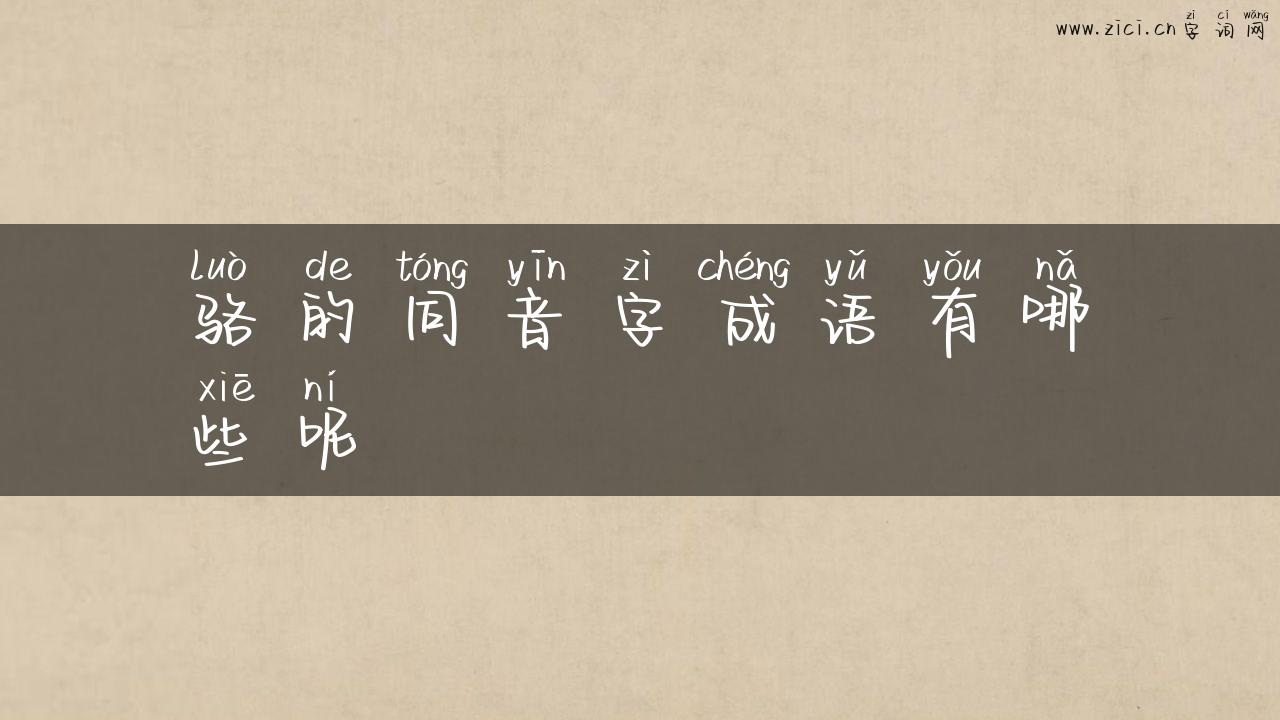 zì cí wǎng
www.zici.cn 字词网
luò de tóng yīn zì chéng yǔ yǒu nǎ
骆的同音字成语有哪
xiē ní
些呢